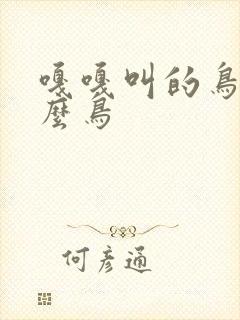 嘎嘎叫的鳥
麼鳥
何彦通